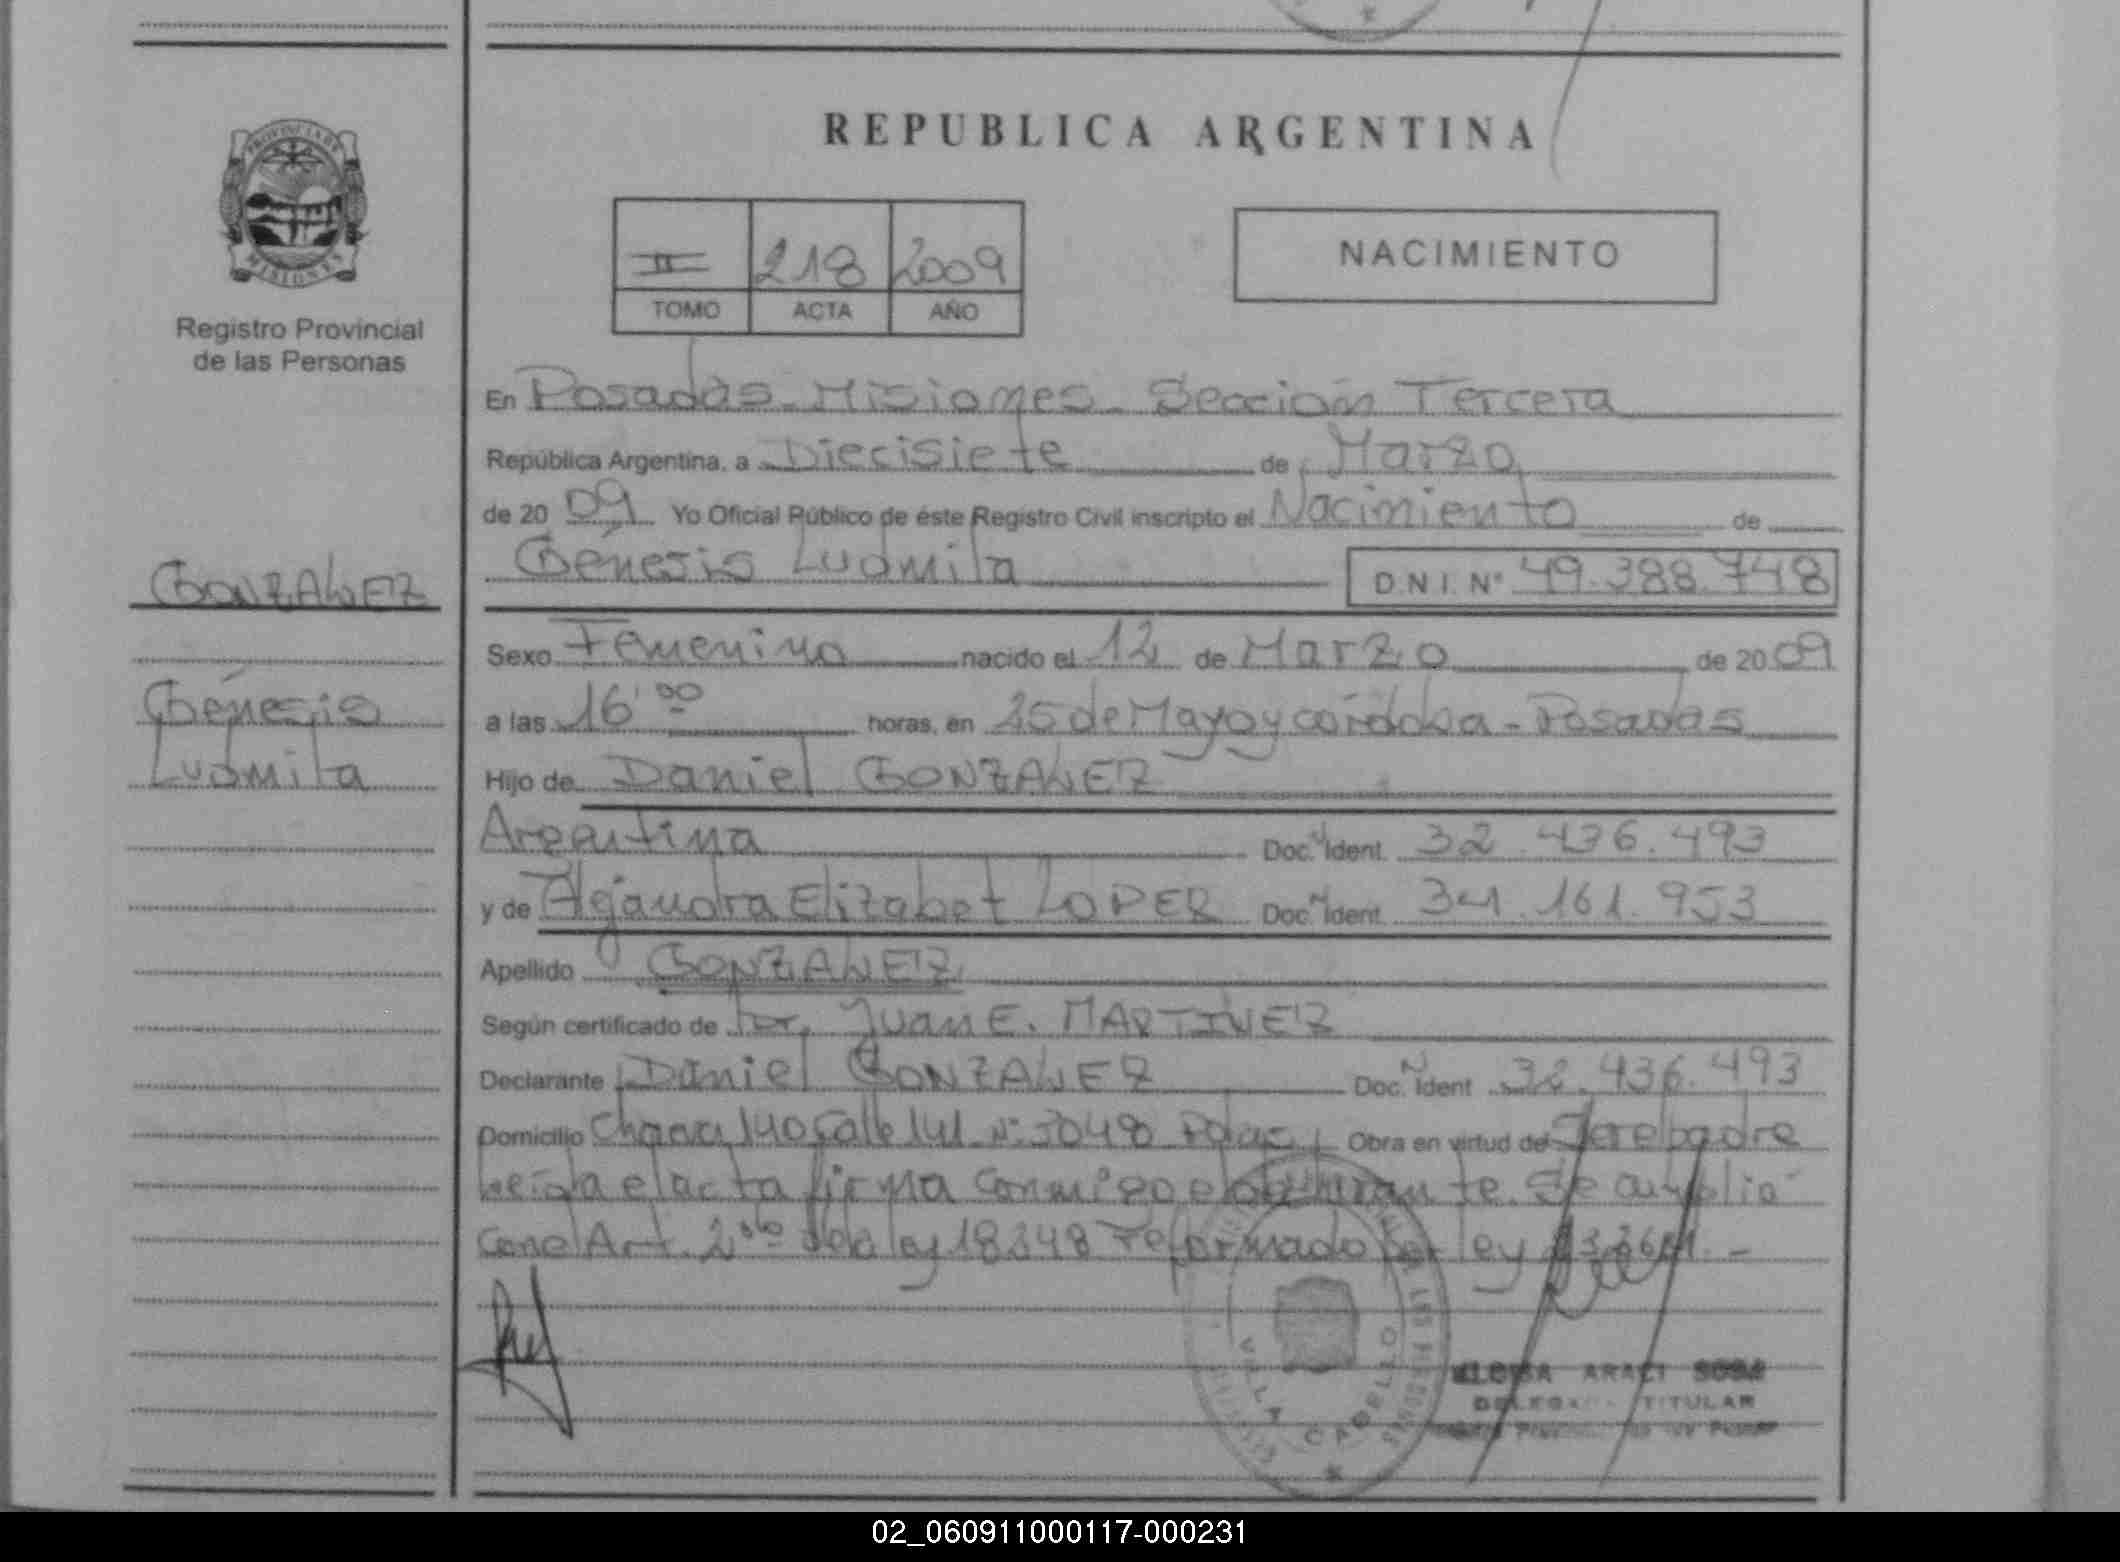 REPUBLICA ARGENTINA
PROVINCIA DE
MISIONES
Registro Provincial
de las Personas
II 218 2009
TOMO ACTA AÑO
NACIMIENTO
En Posadas - Misiones - Sección Tercera
República Argentina, a Diecisiete de Marzo
de 20 09 Yo Oficial Público de éste Registro Civil inscripto el Nacimiento de
Génesis Ludmila D.N.I. Nº 49.388.748
GONZALEZ
Génesis
Ludmila
Sexo Femenino nacido el 12 de Marzo de 20 09
a las 16:00 horas, en 25 de Mayo y córdoba - Posadas
Hijo de Daniel GONZALEZ
Argentina Doc. Ident. 32.436.493
y de Alejandra Elizabet LOPEZ Doc. Ident. 34.161.953
Apellido GONZALEZ
Según certificado de Dr. Juan E. MARTINEZ
Declarante Daniel GONZALEZ Doc. Ident 32.436.493
Domicilio Chacra 140 Calle 141 Nº 3048 Pdas Obra en virtud de Ser el padre
Leída el acta firma conmigo el declarante. Se amplia
con el Art. 2do de la ley 18248 reformado por ley
VILLA CABELLO
ARACI SOSA
DELEGADA TITULAR
02_060911000117-000231